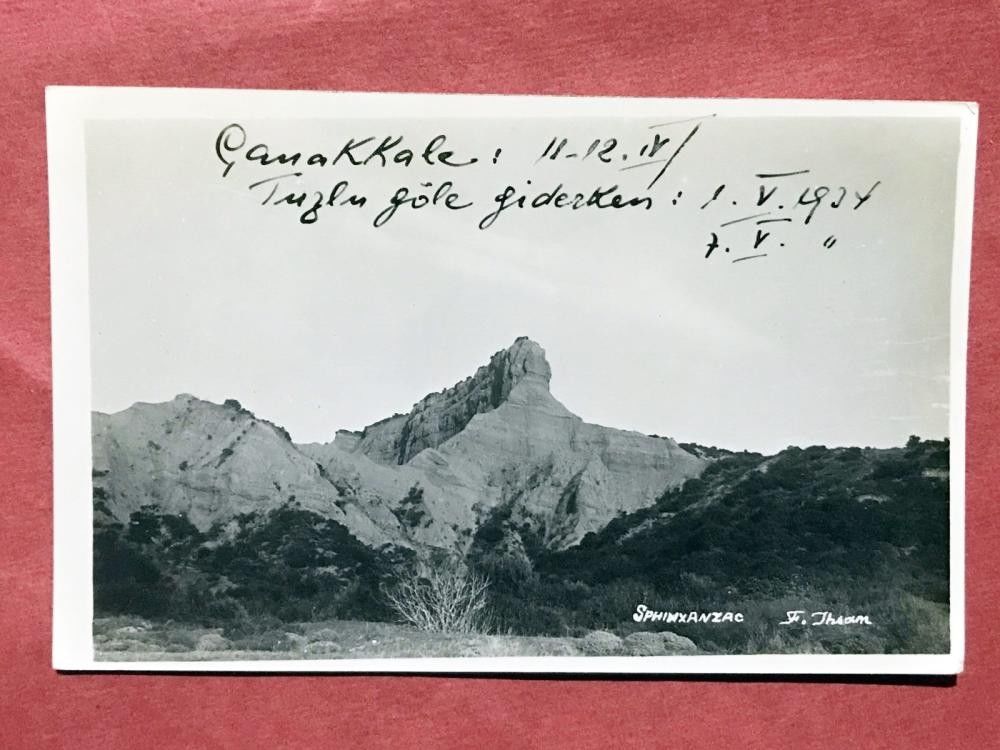 Çanakkale : 11-12. IV/
Tuzlu göle giderken : 1. V. 1934
7. V. "
SPHINXANZAC F. Ihsan